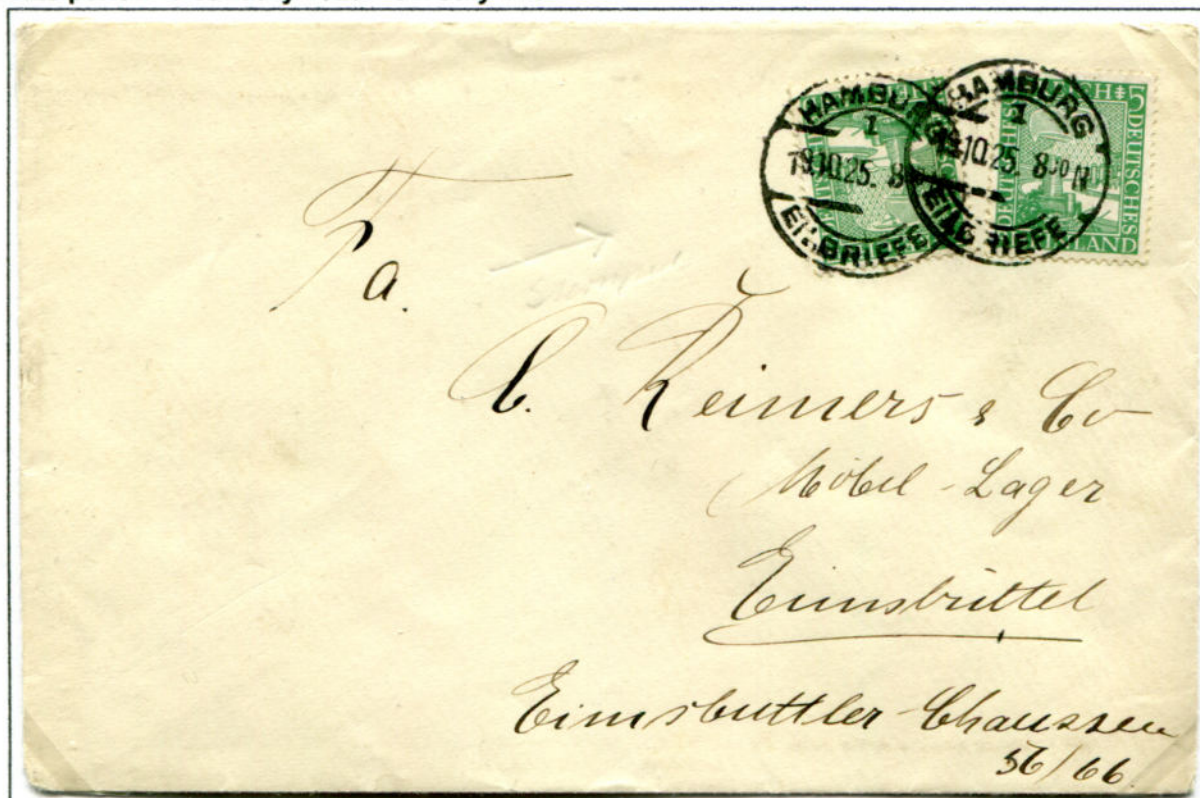 HAMBURG
1
19.10.25. 8
EILBRIEFE
HAMBURG
1
19.10.25. 8³⁰ N
EILBRIEFE
5 DEUTSCHES
Fa.
C. Reimers & Co
Möbel-Lager
Eimsbüttel
Eimsbuttler-Chaussee
56/66